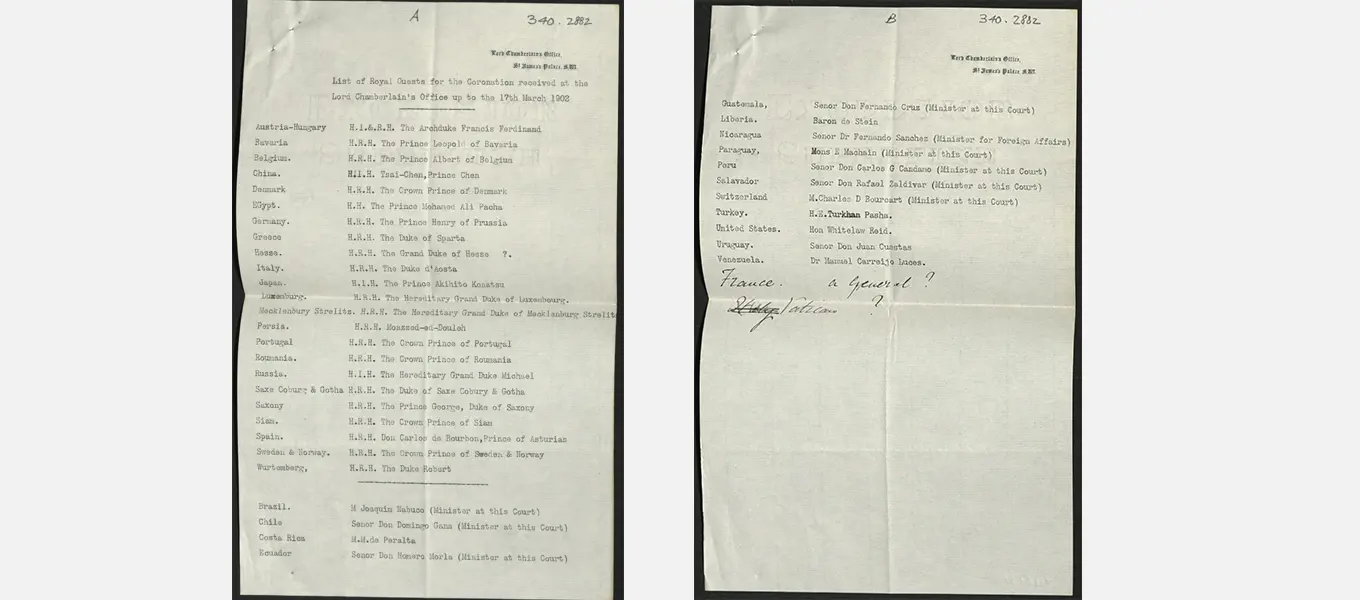 A
340.2882
Lord Chamberlain's Office,
St James's Palace, S.W.
List of Royal Guests for the Coronation received at the
Lord Chamberlain's Office up to the 17th March 1902
Austria-Hungary H.I.&.R.H. The Archduke Francis Ferdinand
Bavaria H.R.H. The Prince Leopold of Bavaria
Belgium. H.R.H. The Prince Albert of Belgium
China. H.I.H. Tsai-Chen,Prince Chen
Denmark H.R.H. The Crown Prince of Denmark
EGypt. H.H. The Prince Mohamed Ali Pacha
Germany. H.R.H. The Prince Henry of Prussia
Greece H.R.H. The Duke of Sparta
Hesse. H.R.H. The Grand Duke of Hesse ?.
Italy. H.R.H. The Duke d'Aosta
Japan. H.I.H. The Prince Akihito Komatsu
Luxemburg. H.R.H. The Hereditary Grand Duke of Luxembourg.
Mecklenbury Strelitz. H.R.H. The Hereditary Grand Duke of Mecklenburg Strelit
Persia. H.R.H. Moazzed-ed-Douleh
Portugal H.R.H. The Crown Prince of Portugal
Roumania. H.R.H. The Crown Prince of Roumania
Russia. H.I.H. The Hereditary Grand Duke Michael
Saxe Coburg & Gotha H.R.H. The Duke of Saxe Cobury & Gotha
Saxony H.R.H. The Prince George, Duke of Saxony
Siam. H.R.H. The Crown Prince of Siam
Spain. H.R.H. Don Carlos de Bourbon,Prince of Asturias
Sweden & Norway. H.R.H. The Crown Prince of Sweden & Norway
Wurtemberg, H.R.H. The Duke Robert
Brazil. M Joaquim Nabuco (Minister at this Court)
Chile Senor Don Domingo Gana (Minister at this Court)
Costa Rica M.M.de Peralta
Ecuador Senor Don Homero Morla (Minister at this Court)
B
340.2882
Lord Chamberlain's Office,
St James's Palace, S.W.
Guatemala, Senor Don Fernando Cruz (Minister at this Court)
Liberia. Baron de Stein
Nicaragua Senor Dr Fernando Sanchez (Minister for Foreign Affairs)
Paraguay, Mons E Machain (Minister at this Court)
Peru Senor Don Carlos G Candamo (Minister at this Court)
Salavador Senor Don Rafael Zaldivar (Minister at this Court)
Switzerland M.Charles D Bourcart (Minister at this Court)
Turkey. H.E.Turkhan Pasha.
United States. Hon Whitelaw Reid.
Uruguay. Senor Don Juan Cuestas
Venezuela. Dr Manuel Carreijo Luces.
France. a General ?
Vatican ?